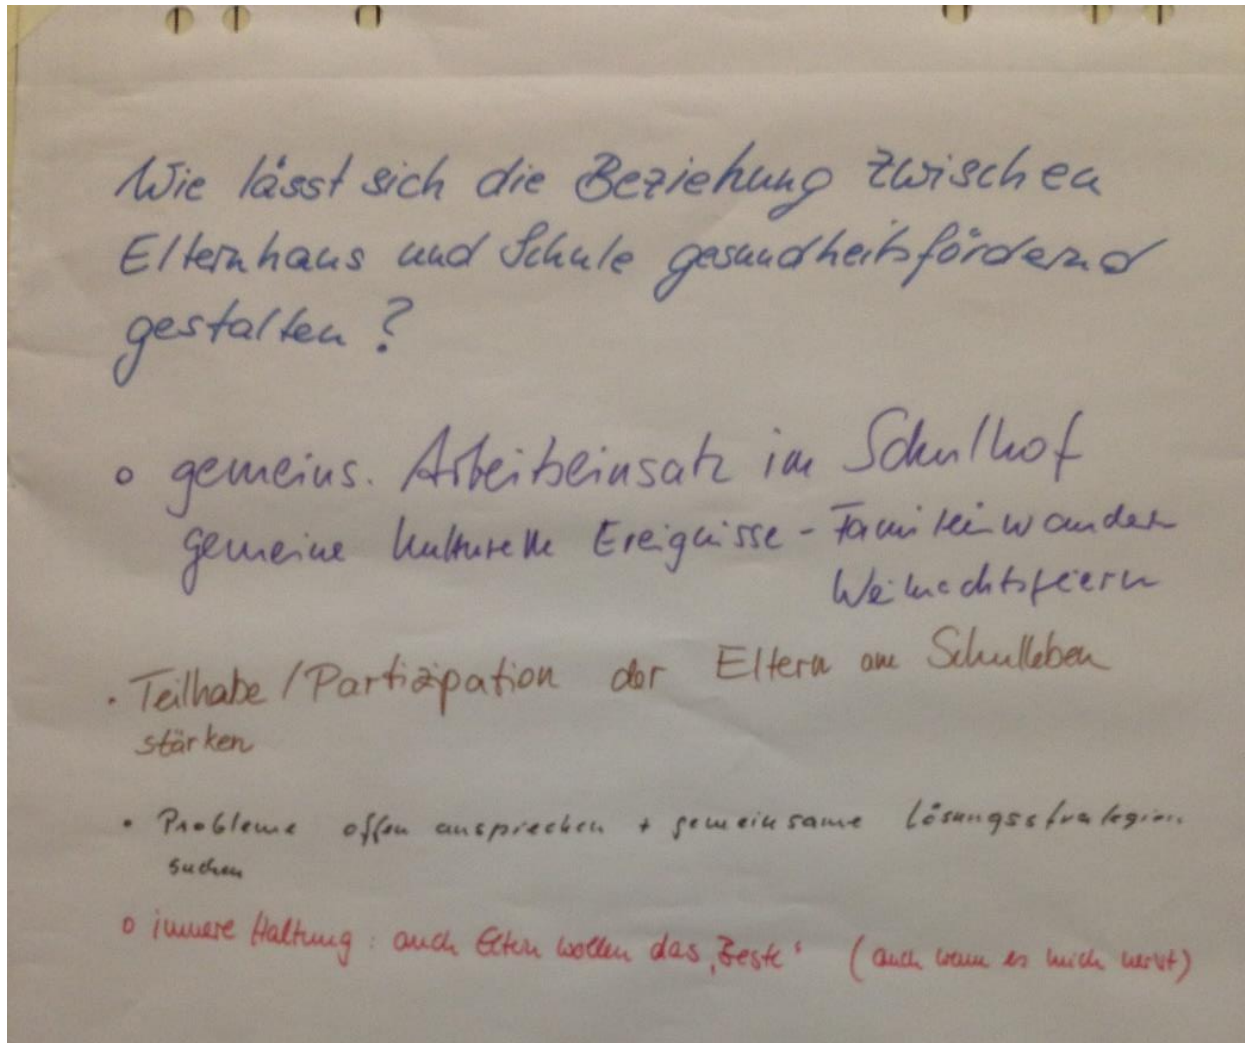 Wie lässt sich die Beziehung zwischen
Elternhaus und Schule gesundheitsfördernd
gestalten?
o gemeins. Arbeitseinsatz im Schulhof
gemeine kulturelle Ereignisse - Familienwandern
Weihnachtsfeiern
· Teilhabe/Partizipation der Eltern am Schulleben
stärken
• Probleme offen ansprechen + gemeinsame Lösungsstrategien
suchen
o innere Haltung: auch Eltern wollen das „Beste“ (auch wenn es mich nervt)